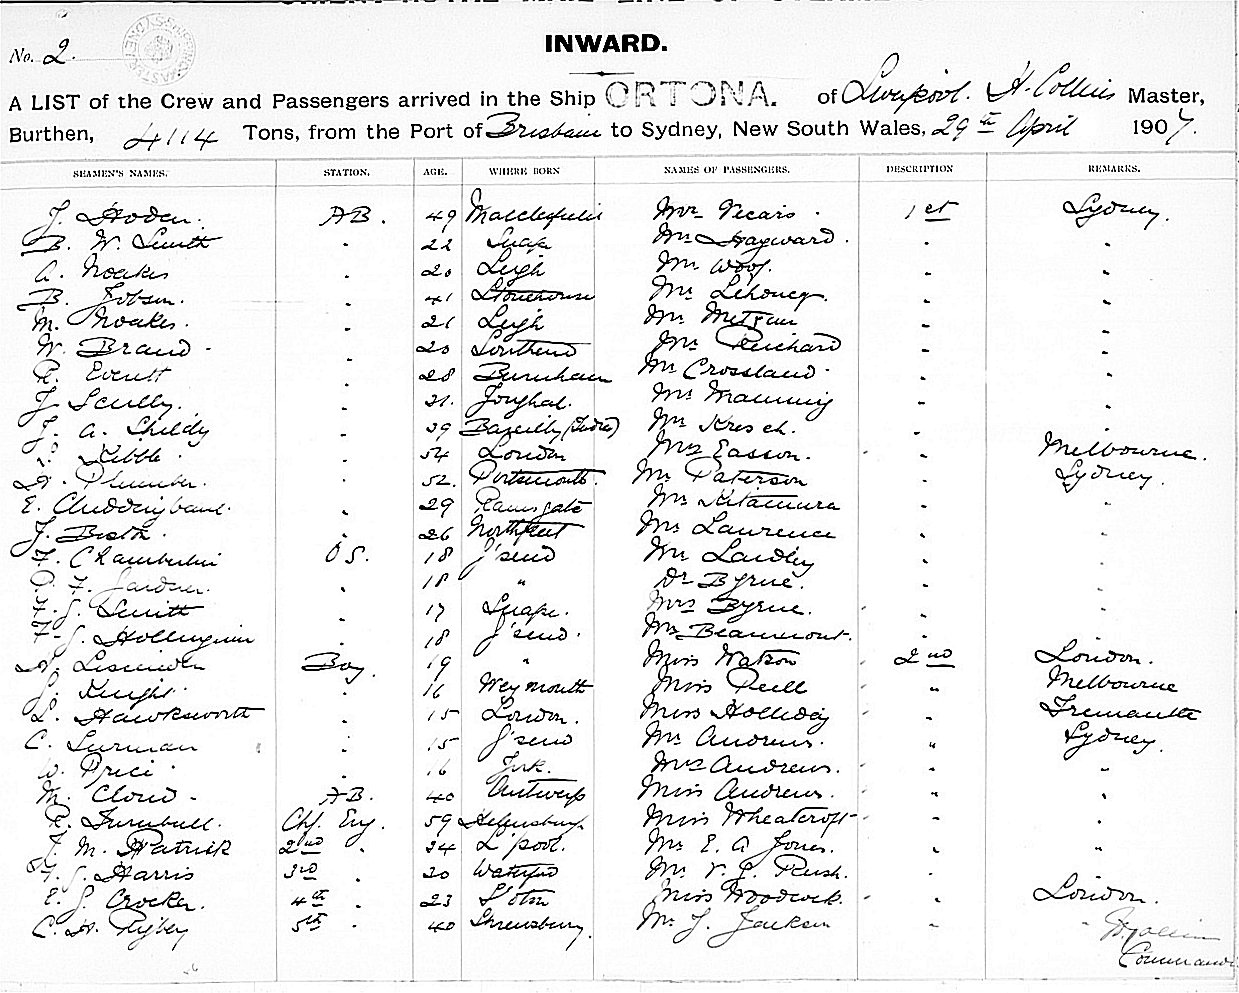 INWARD.
No. 2.
A LIST of the Crew and Passengers arrived in the Ship ORTONA. of Liverpool. H. Collins Master,
Burthen, 4114 Tons, from the Port of Brisbane to Sydney, New South Wales, 29th April 1907.
SEAMEN'S NAMES. STATION. AGE. WHERE BORN NAMES OF PASSENGERS. DESCRIPTION REMARKS.
J. A.B. 49 Macclesfield Mr Vicars. 1st Sydney.
B. W. Smith " 22 Snape Mr Hayward. " "
A. Noakes " 20 Leigh Mr Woof. " "
B. Jobson. " 41 Stonehouse Mr " "
M. Noakes. " 21 Leigh Mr " "
W. Brand " 20 Southend Mr " "
R. Everett " 28 Burnham Mr Crossland " "
J. Scully. " 21. Mr Manning " "
J. A. " 39 Bareilly (India) Mr " "
Kibble " 54 London Mrs Easson. " Melbourne.
Plumber. " 52. Portsmouth. Mr Paterson " Sydney.
E. " 29 Ramsgate Mr Kitamura " "
J. " 26 Northfleet Mr Lawrence " "
F. Chamberlin O S. 18 G'send Mr " "
F. Gardner. " 18 " Dr Byrne. " "
F. G. Smith " 17 Snape. Mrs Byrne. " "
F. G. " 18 G'send. Mr Beaumont. " "
Boy. 19 " Miss Watson 2nd London.
Knight. " 16 Weymouth Miss " Melbourne
L. Hawksworth " 15 London. Miss Holliday " Fremantle
C. Surman " 15 G'send Mr Andrews. " Sydney.
W. Price " 16 Mrs Andrews. " "
M. Cloud A.B. 40 Antwerp Miss Andrews. " "
R. Turnbull. Chf. Eng. 59 Miss Wheatcroft " "
M. Patrick 2nd " 24 L'pool. Mr E. A Jones. " "
Harris 3rd " 20 Waterford Mr V. J. Rush. " "
E. G. Crocker. 4th " 23 S'oton Miss " London.
C. H. Rigby 5th " 40 Shrewsbury. Mr J. Jackson " "
H. Collins
Commander